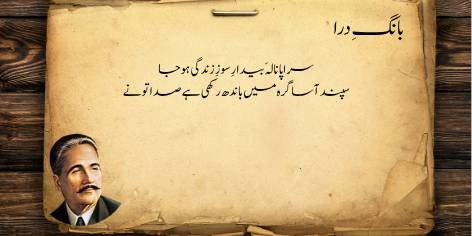 بانگِ درا
سراپا نالۂ بیدادِ سوزِ زندگی ہو جا
سپند آسا گرہ میں باندھ رکھی ہے صدا تو نے